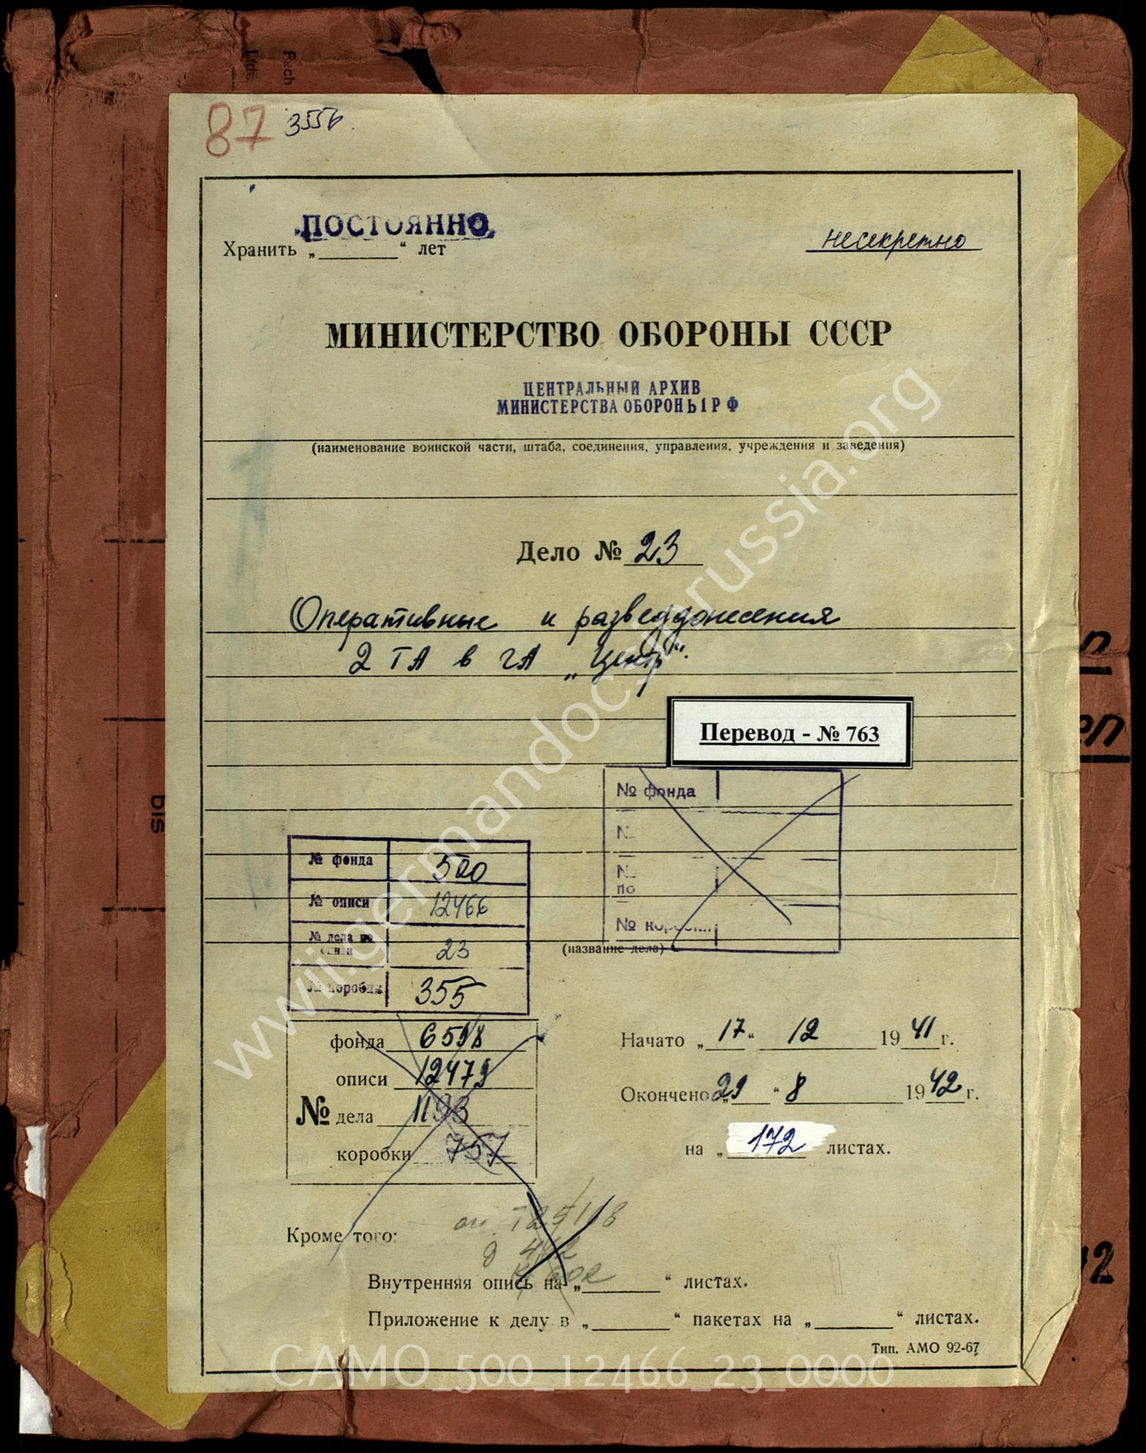 87 3556
ПОСТОЯННО
Хранить „ “ лет
несекретно
МИНИСТЕРСТВО ОБОРОНЫ СССР
ЦЕНТРАЛЬНЫЙ АРХИВ
МИНИСТЕРСТВА ОБОРОНЫ РФ
(наименование воинской части, штаба, соединения, управления, учреждения и заведения)
Дело № 23
Оперативные и разведдонесения
2 ТА в ГА „Центр“.
Перевод - № 763
№ фонда
№
№
по
№ коробки
№ фонда 500
№ описи 12466
№ дела по описи 23
№ коробки 355
(название дела)
фонда 6598
описи 12472
№ дела 1193
коробки 757
Начато „17“ 12 1941 г.
Окончено „29“ 8 1942 г.
на „172 листах.
Кроме того:
Внутренняя опись на „ “ листах.
Приложение к делу в „ “ пакетах на „ “ листах.
Тип. АМО 92-67
www.germandocsinrussia.org
CAMO_500_12466_23_0000